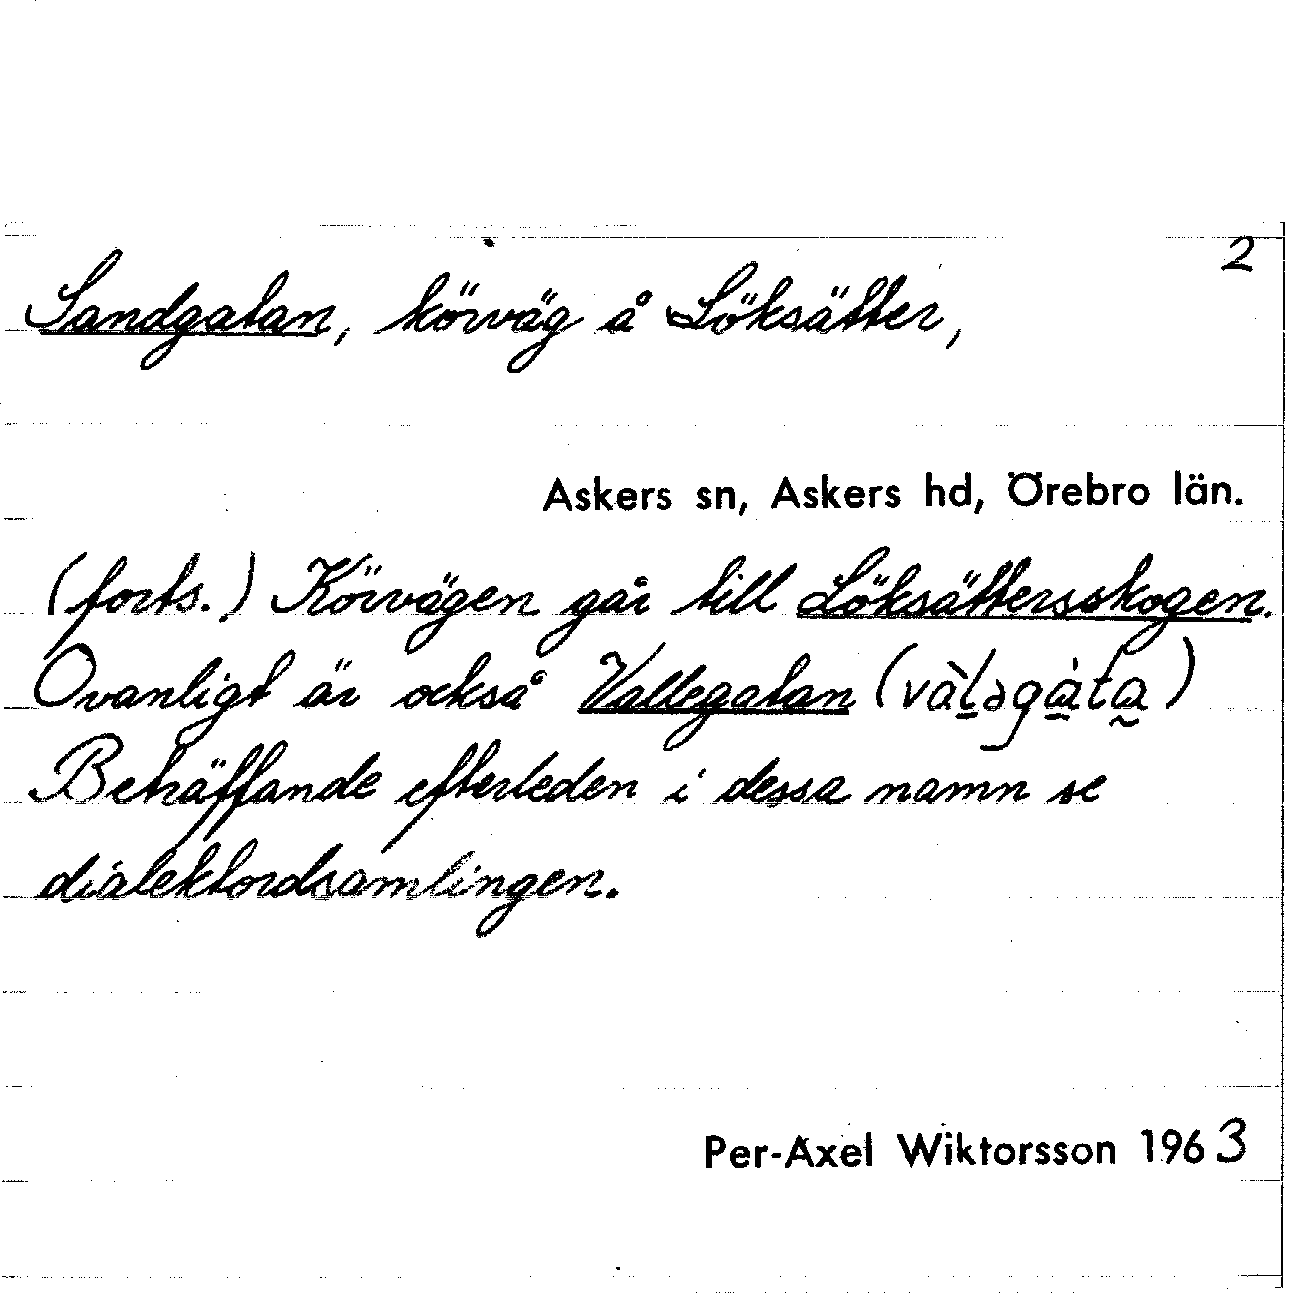 2
Sandgatan, körväg å Löksätter,
Askers sn, Askers hd, Örebro län.
(forts.) Körvägen går till Löksättersskogen.
Ovanligt är också Vallegatan
Beträffande efterleden i dessa namn se
dialektordsamlingen.
Per-Axel Wiktorsson 1963